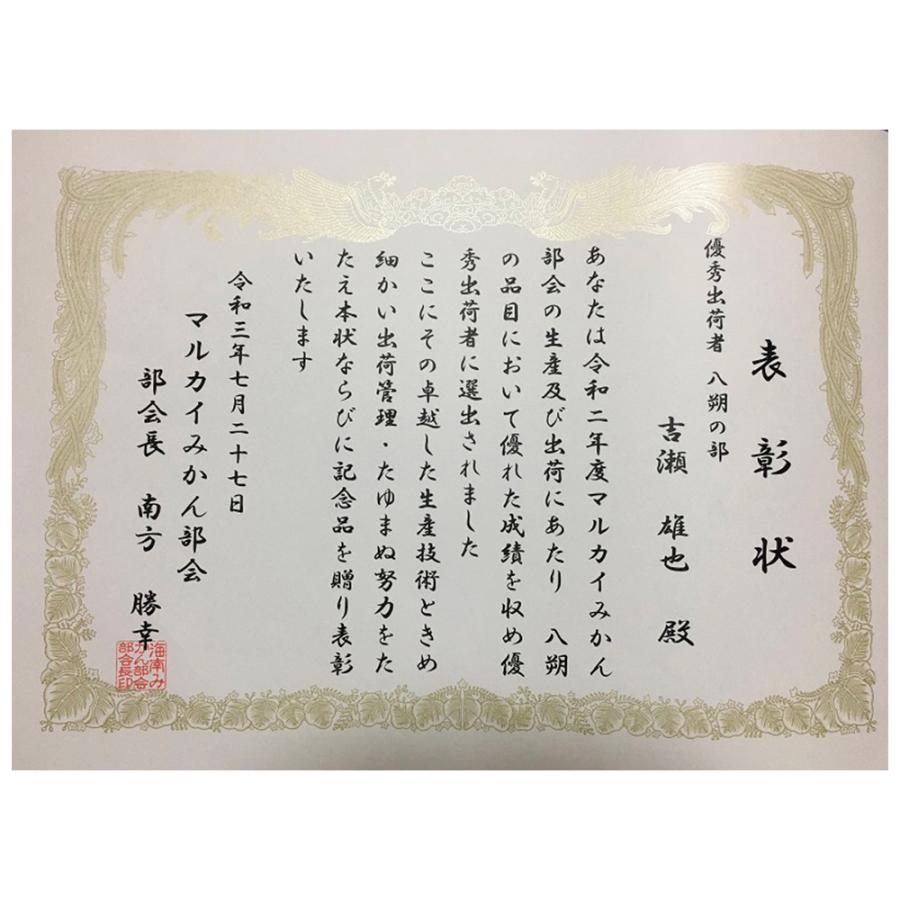 表彰状
優秀出荷者 八朔の部
吉瀬 雄也 殿
あなたは令和二年度マルカイみかん
部会の生産及び出荷にあたり 八朔
の品目において優れた成績を収め優
秀出荷者に選出されました
ここにその卓越した生産技術ときめ
細かい出荷管理・たゆまぬ努力をた
たえ本状ならびに記念品を贈り表彰
いたします
令和三年七月二十七日
マルカイみかん部会
部会長 南方 勝幸
海南み
かん部会
部会長印